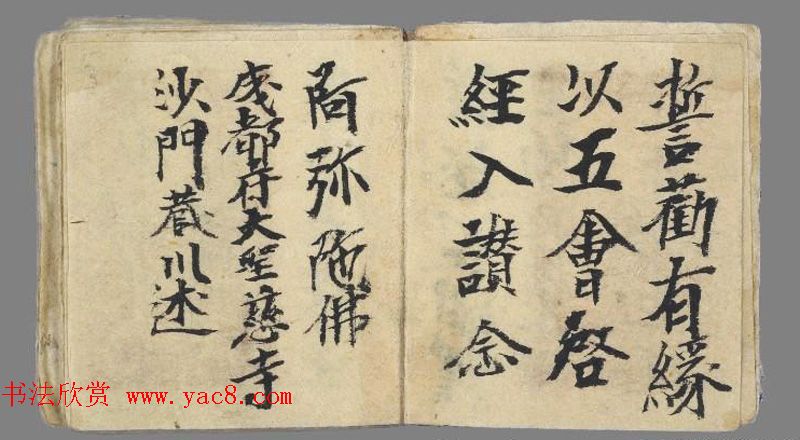 誓勸有緣
以五會啓
經入讚念
阿弥陁佛
成都府大聖慈寺
沙門藏川述
书法欣赏 www.yac8.com